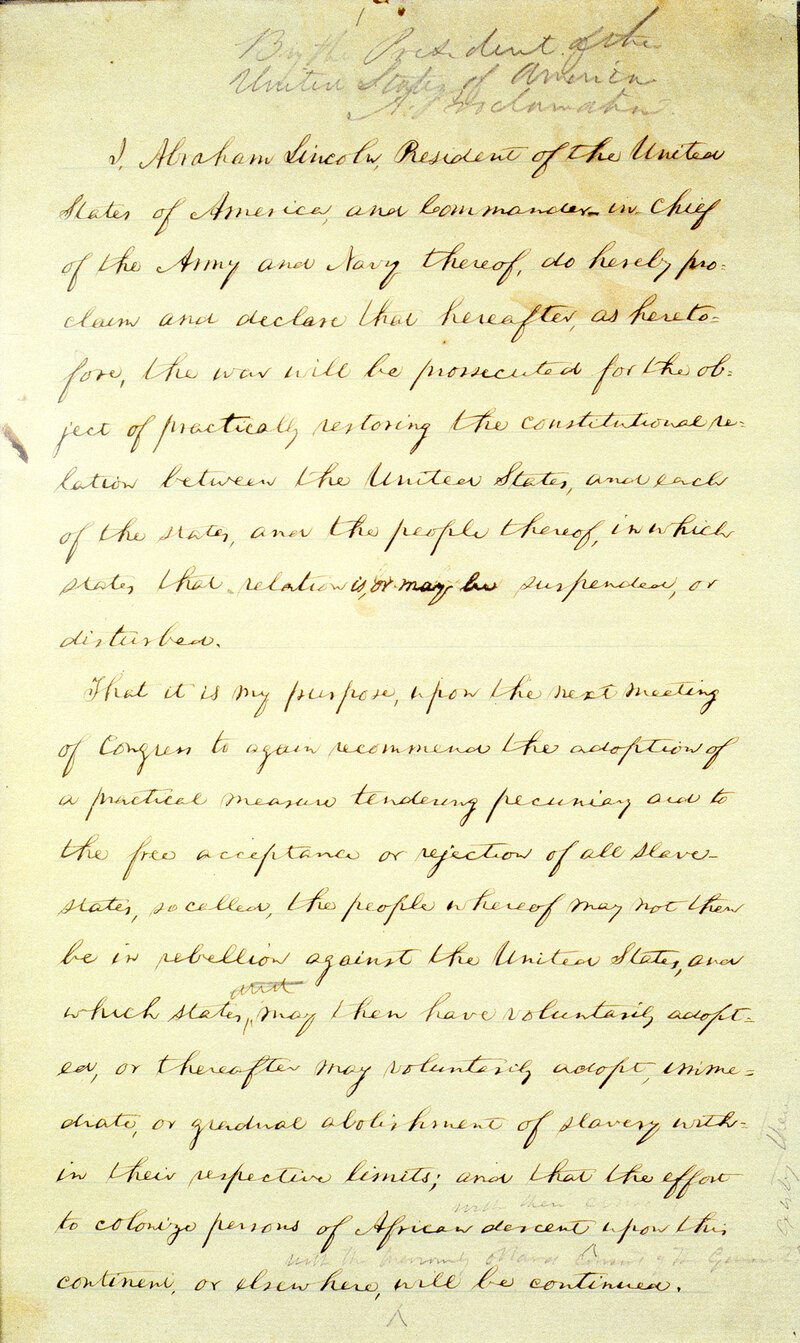 By the President of the
United States of America
A. Proclamation.
I, Abraham Lincoln, President of the United
States of America, and Commander-in-Chief
of the Army and Navy thereof, do hereby pro-
claim and declare that hereafter, as hereto-
fore, the war will be prossecuted for the ob-
ject of practically restoring the constitutional re-
lation between the United States, and each
of the states, and the people thereof, in which
states that relation is, or may be suspended, or
disturbed.
That it is my purpose, upon the next meeting
of Congress to again recommend the adoption of
a practical measure tendering pecuniary aid to
the free acceptance or rejection of all slave-
states, so called, the people whereof may not then
be in rebellion against the United States, and
and
which states, may then have voluntarily adopt-
ed, or thereafter may voluntarily adopt, imme-
diate, or gradual abolishment of slavery with-
in their respective limits; and that the effort
with their consent
to colonize persons of African descent upon this
with the previously obtained consent of the Governments
continent, or elsewhere, will be continued.